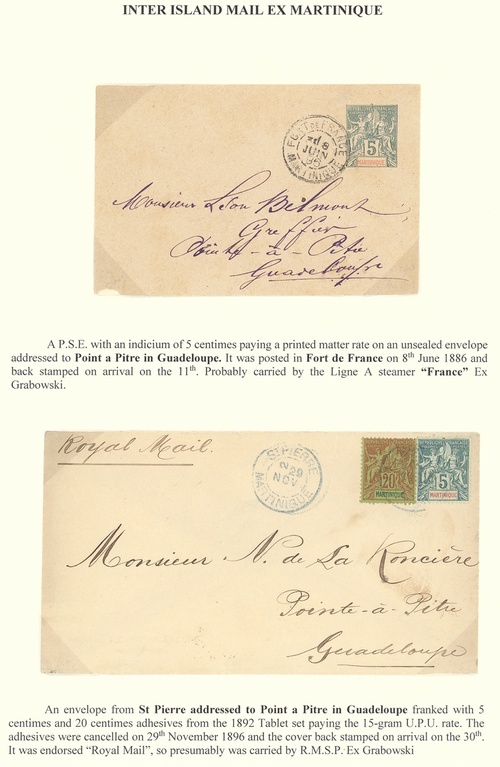 INTER ISLAND MAIL EX MARTINIQUE
FORT DE FRANCE
JUIN
MARTINIQUE
5
MARTINIQUE
Monsieur Léon Belmont
Greffier
Pointe-à-Pitre
Guadeloupe
A P.S.E. with an indicium of 5 centimes paying a printed matter rate on an unsealed envelope
addressed to Point a Pitre in Guadeloupe. It was posted in Fort de France on 8th June 1886 and
back stamped on arrival on the 11th. Probably carried by the Ligne A steamer “France” Ex
Grabowski.
Royal Mail.
ST PIERRE
29
NOV
MARTINIQUE
20
MARTINIQUE
5
MARTINIQUE
Monsieur N. de La Roncière
Pointe-à-Pitre
Guadeloupe
An envelope from St Pierre addressed to Point a Pitre in Guadeloupe franked with 5
centimes and 20 centimes adhesives from the 1892 Tablet set paying the 15-gram U.P.U. rate. The
adhesives were cancelled on 29th November 1896 and the cover back stamped on arrival on the 30th.
It was endorsed “Royal Mail”, so presumably was carried by R.M.S.P. Ex Grabowski